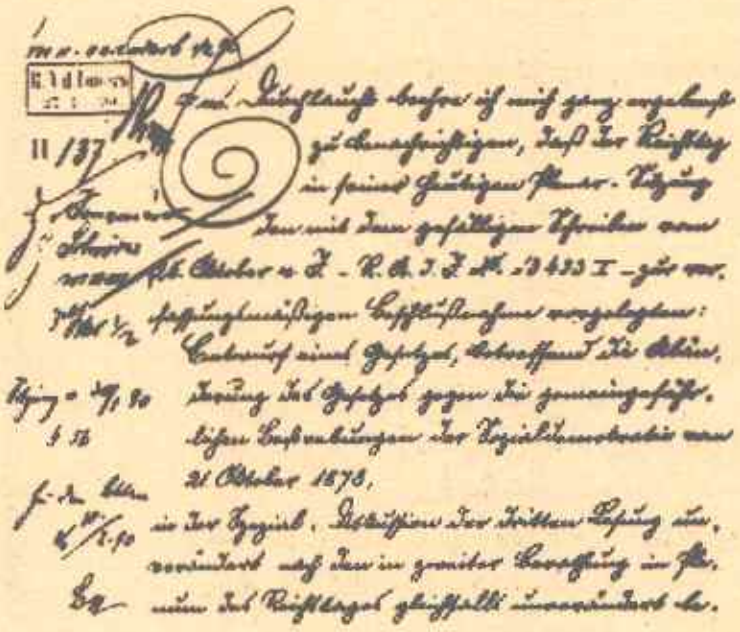 II/137
Ew. Durchlaucht beehre ich mich ganz ergebenst
zu benachrichtigen, daß der Reichstag
in seiner heutigen Plenar-Sitzung
den mit dem gefälligen Schreiben vom
25. Oktober v. J. - R. A. d. J. No. 13433 I - zur ver-
fassungsmäßigen Beschlußnahme vorgelegten:
Entwurf eines Gesetzes, betreffend die Abän-
derung des Gesetzes gegen die gemeingefähr-
lichen Bestrebungen der Sozialdemokratie vom
21 Oktober 1878,
in der Spezial-Diskussion der dritten Lesung un-
verändert nach den in zweiter Berathung im Ple-
num des Reichstages gleichfalls unverändert be-